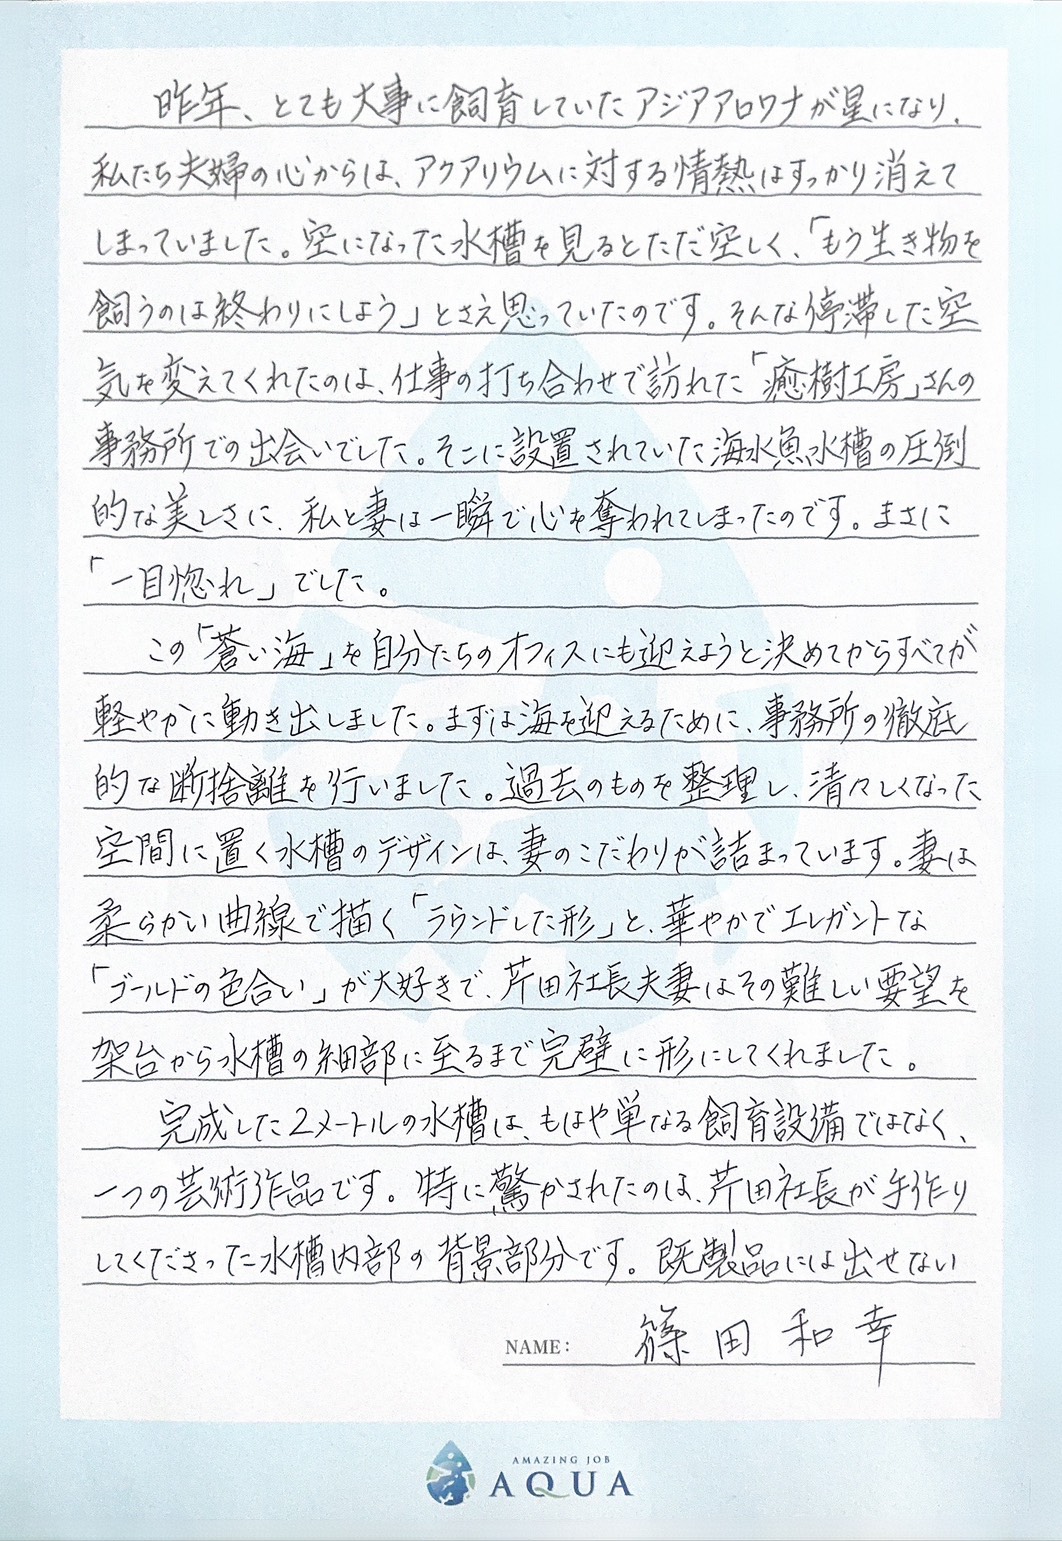 昨年、とても大事に飼育していたアジアアロワナが星になり、
私たち夫婦の心からは、アクアリウムに対する情熱はすっかり消えて
しまっていました。空になった水槽を見るとただ空しく、「もう生き物を
飼うのは終わりにしよう」とさえ思っていたのです。そんな停滞した空
気を変えてくれたのは、仕事の打ち合わせで訪れた「癒樹工房」さんの
事務所での出会いでした。そこに設置されていた海水魚水槽の圧倒
的な美しさに、私と妻は一瞬で心を奪われてしまったのです。まさに
「一目惚れ」でした。
この「蒼い海」を自分たちのオフィスにも迎えようと決めてからすべてが
軽やかに動き出しました。まずは海を迎えるために、事務所の徹底
的な断捨離を行いました。過去のものを整理し、清々しくなった
空間に置く水槽のデザインは、妻のこだわりが詰まっています。妻は
柔らかい曲線で描く「ラウンドした形」と、華やかでエレガントな
「ゴールドの色合い」が大好きで、芹田社長夫妻はその難しい要望を
架台から水槽の細部に至るまで完璧に形にしてくれました。
完成した2メートルの水槽は、もはや単なる飼育設備ではなく、
一つの芸術作品です。特に驚かされたのは、芹田社長が手作り
してくださった水槽内部の背景部分です。既製品には出せない
NAME: 篠田和幸
AMAZING JOB
AQUA